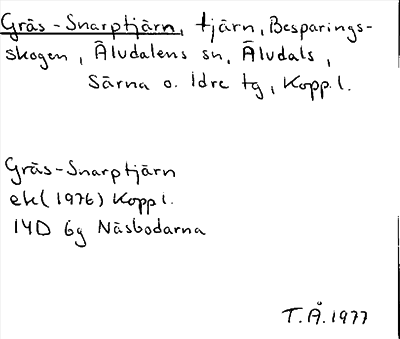 Gräs-Snarptjärn, tjärn, Besparings-
skogen, Äludalens sn, Äludals,
Särna o. Idre tg, Kopp. l.
Gräs-Snarptjärn
ek (1976) Kopp l.
14D 6g Näsbodarna
T.Å. 1977